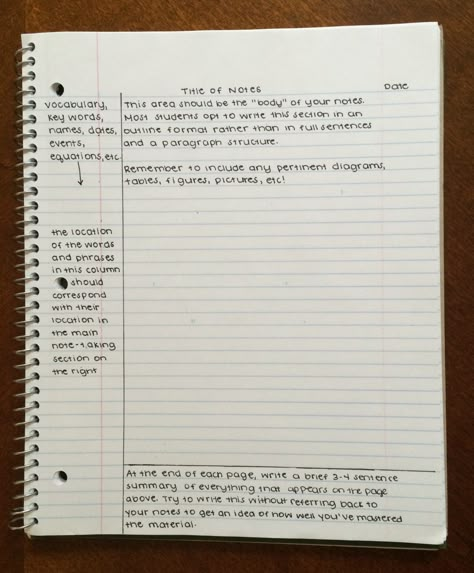 Title of Notes
Date
vocabulary,
key words,
names, dates,
events,
equations, etc.
This area should be the "body" of your notes.
Most students opt to write this section in an
outline format rather than in full sentences
and a paragraph structure.
Remember to include any pertinent diagrams,
tables, figures, pictures, etc!
the location
of the words
and phrases
in this column
should
correspond
with their
location in
the main
note-taking
section on
the right
At the end of each page, write a brief 3-4 sentence
summary of everything that appears on the page
above. Try to write this without referring back to
your notes to get an idea of how well you've mastered
the material.